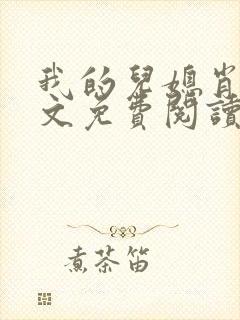 我的兒媳肖
文免費閱讀
煮茶笛